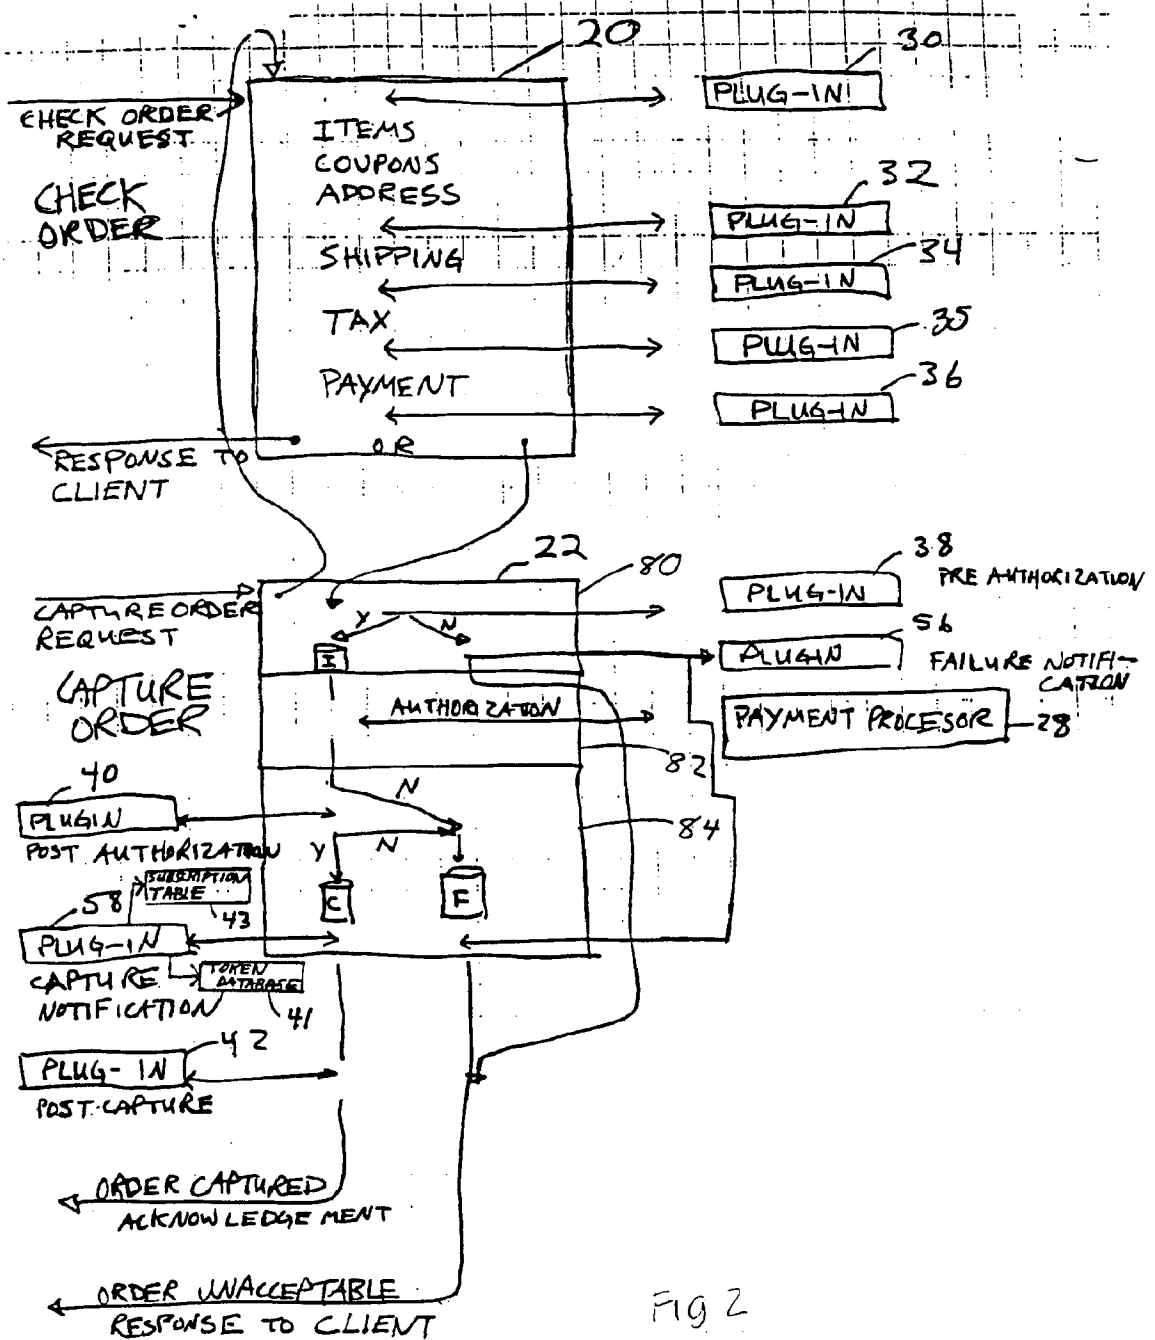 20
30
CHECK ORDER
REQUEST
PLUG-IN
ITEMS
COUPONS
ADDRESS
CHECK
ORDER
32
PLUG-IN
SHIPPING
34
PLUG-IN
TAX
35
PLUG-IN
PAYMENT
36
PLUG-IN
OR
RESPONSE TO
CLIENT
22
80
38
PRE AUTHORIZATION
PLUG-IN
CAPTURE ORDER
REQUEST
Y
N
I
56
PLUGIN
FAILURE NOTIFI-
CATION
CAPTURE
ORDER
AUTHORIZATION
PAYMENT PROCESOR
28
82
40
PLUGIN
POST AUTHORIZATION
N
Y
N
84
SUBSCRIPTION
TABLE
43
58
C
F
PLUG-IN
CAPTURE
NOTIFICATION
TOKEN
DATABASE
41
42
PLUG-IN
POST-CAPTURE
ORDER CAPTURED
ACKNOWLEDGEMENT
ORDER UNACCEPTABLE
RESPONSE TO CLIENT
FIG 2